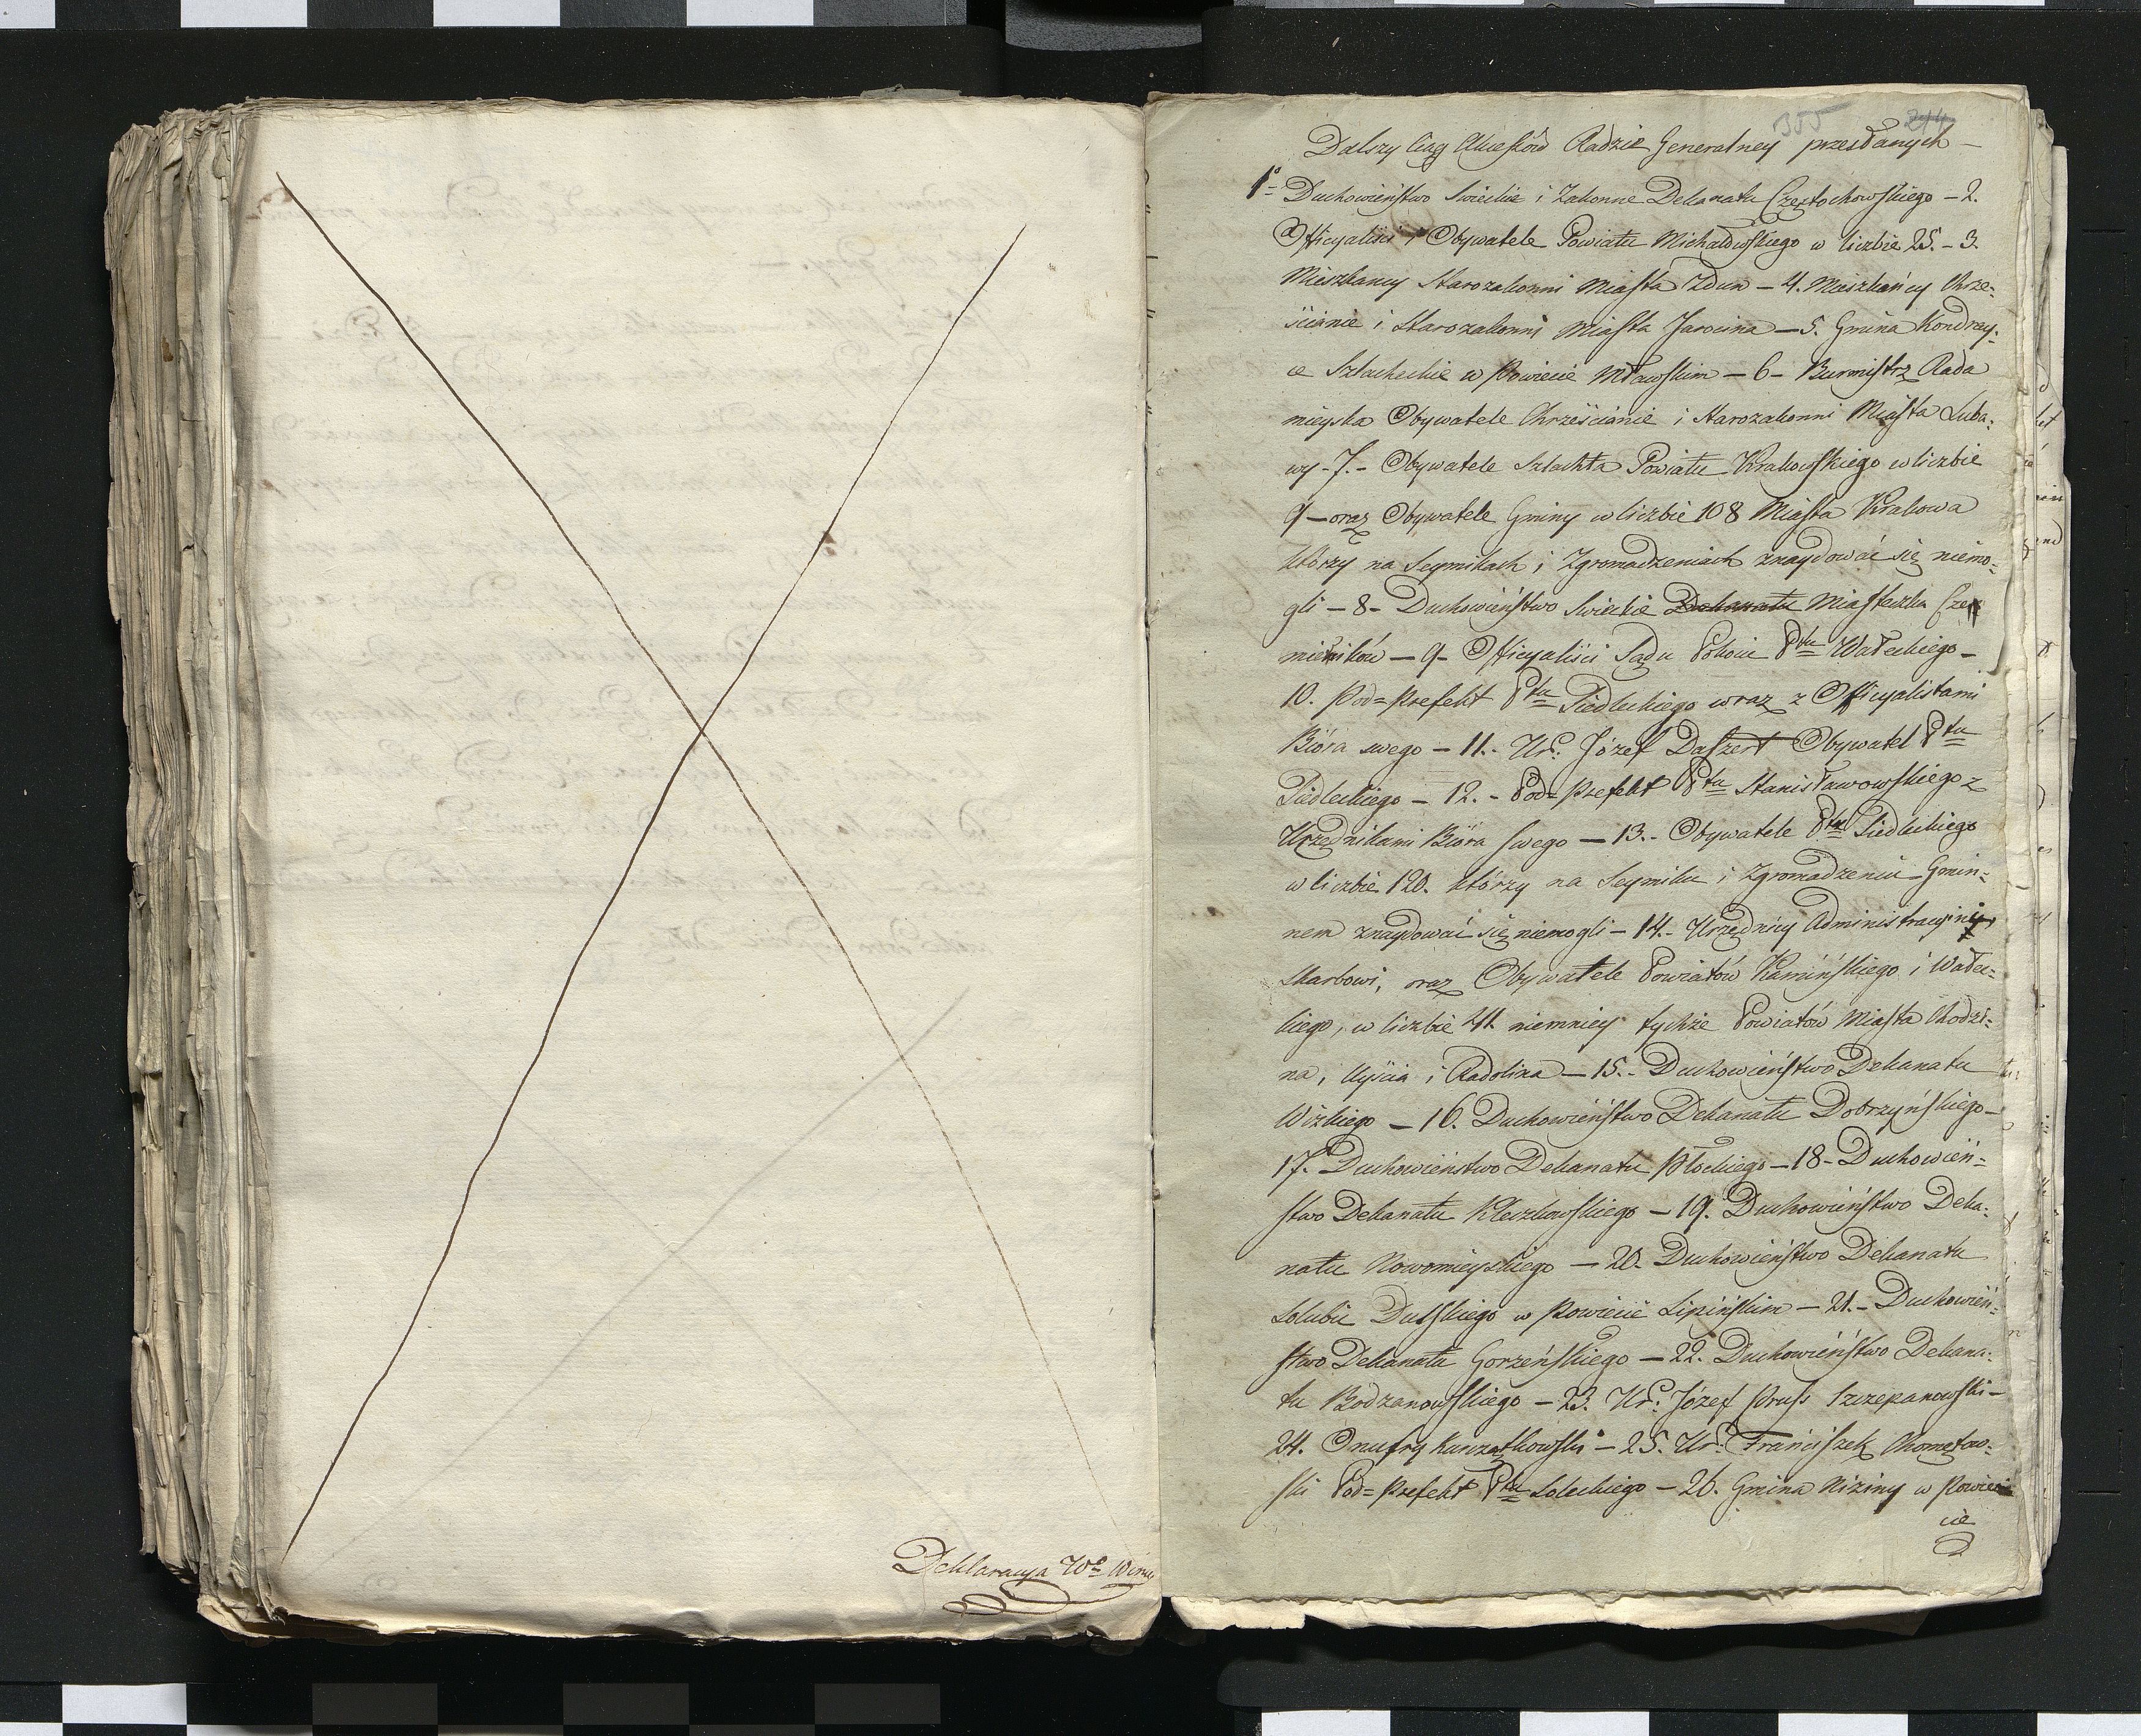 Deklaracya Wo
355 244
Dalszy Ciąg Akcessów Radzie Generalney przesłanych –
1o Duchowieństwo Swieckie i Zakonne Dekanatu Częstochowskiego – 2.
Officyaliści i Obywatele Powiatu Michałowskiego w liczbie 25. – 3.
Mieszkancy Starozakonni Miasta Zdun – 4. Mieszkańcy Chrze:
ścianie i Starozakonni Miasta Jarocina – 5. Gmina Kondray:
ce Szlacheckie w Powiecie Mławskim – 6 – Burmistrz Rada
mieyska Obywatele Chrześcianie i Starozakonni Miasta Luba:
wy – 7. – Obywatele Szlachta Powiatu Krakowskiego w liczbie
9 – oraz Obywatele Gminy w liczbie 108 Miasta Krakowa
którzy na Seymikach i Zgromadzeniach znaydować się niemo:
gli – 8 – Duchowieństwo Swieckie Dekanatu Miasteczka Czer
mieników – 9 – Officyaliści Sądu Pokoiu Ptu Wałeckiego –
10. Pod=Prefekt Ptu Siedleckiego wraz z Officyalistami
Bióra swego – 11. – Ur: Józef Daszert Obywatel Ptu
Siedleckiego – 12. – Pod=Prefekt Ptu Stanisławowskiego z
Urzędnikami Bióra swego – 13. – Obywatele Ptu Siedleckiego
w liczbie 120. którzy na Seymiku i Zgromadzeniu Gmin:
nem znaydować się niemogli – 14. – Urzędnicy Administracyini,
skarbowi, oraz Obywatele Powiatów Kamińskiego i Wałec:
kiego, w liczbie 41. niemniey tychże Powiatów Miasta Chodzi:
na, Uyścia i Radolina – 15. – Duchowieństwo Dekanatu
Wizkiego – 16. Duchowieństwo Dekanatu Dobrzyńskiego –
17. Duchowieństwo Dekanatu Płockiego – 18 – Duchowień:
stwo Dekanatu Kleczkowskiego – 19. Duchowieństwo Deka:
natu Nowomieyskiego – 20. Duchowieństwo Dekanatu
Dulskiego w Powiecie Lipińskim – 21. – Duchowień:
stwo Dekanatu Gorzeńskiego – 22. Duchowieństwo Dekana:
tu Bodzanowskiego – 23. Ur: Józef Pruss Szczepanowski –
24. Onufry Kurzątkowski – 25. Ur: Franciszek Chomętow:
ski Pod=Prefekt Ptu Soleckiego – 26. Gmina Niziny w Powie
cie